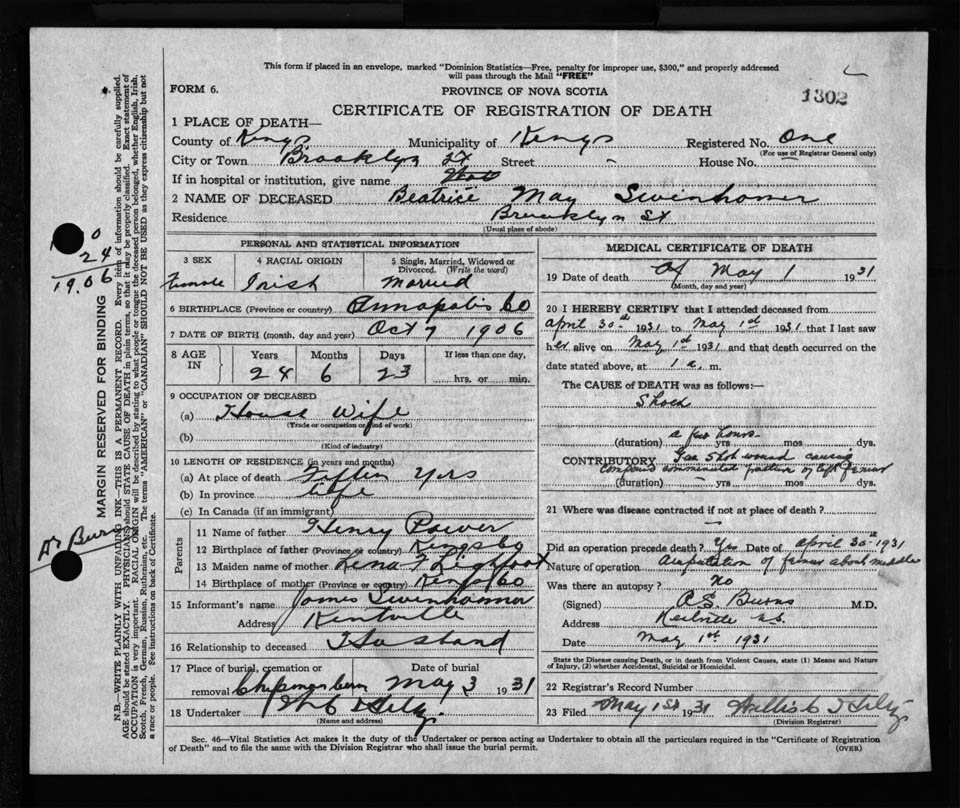 This form if placed in an envelope, marked "Dominion Statistics—Free, penalty for improper use, $300," and properly addressed
will pass through the Mail "FREE"
FORM 6.
PROVINCE OF NOVA SCOTIA
1302
CERTIFICATE OF REGISTRATION OF DEATH
1 PLACE OF DEATH—
County of Kings Municipality of Kings Registered No. One
(For use of Registrar General only)
City or Town Brooklyn St Street - House No.
If in hospital or institution, give name
2 NAME OF DECEASED Beatrice May Swinhamer
Residence Brooklyn St
(Usual place of abode)
PERSONAL AND STATISTICAL INFORMATION
3 SEX 4 RACIAL ORIGIN 5 Single, Married, Widowed or
Divorced. (Write the word)
Female Irish Married
6 BIRTHPLACE (Province or country) Annapolis Co
7 DATE OF BIRTH (month, day and year) Oct 7 1906
8 AGE IN Years Months Days If less than one day,
24 6 23 hrs. or min.
9 OCCUPATION OF DECEASED
(a) House Wife
(Trade or occupation or kind of work)
(b)
(Kind of industry)
10 LENGTH OF RESIDENCE (in years and months)
(a) At place of death Fifteen Yrs
(b) In province Life
(c) In Canada (if an immigrant)
Parents
11 Name of father Henry Power
12 Birthplace of father (Province or country) Kings Co
13 Maiden name of mother Lena F Lightfoot
14 Birthplace of mother (Province or country) Kings Co
15 Informant's name James Swinhamer
Address Kentville
16 Relationship to deceased Husband
17 Place of burial, cremation or Date of burial
removal May 3 1931
18 Undertaker
(Name and address)
MEDICAL CERTIFICATE OF DEATH
19 Date of death May 1 1931
(Month, day and year)
20 I HEREBY CERTIFY that I attended deceased from
April 30th 1931 to May 1st 1931 that I last saw
her alive on May 1st 1931 and that death occurred on the
date stated above, at 1 a. m.
The CAUSE of DEATH was as follows:—
Shock
a few hours
(duration) yrs mos dys.
CONTRIBUTORY Gun Shot wound causing
compound comminuted fracture of left femur
(duration) - yrs mos dys.
21 Where was disease contracted if not at place of death?
—
Did an operation precede death? Yes Date of April 30th 1931
Nature of operation Amputation of femur about middle
Was there an autopsy? no
(Signed) Burns M.D.
Address Kentville N.S.
Date May 1st 1931
State the Disease causing Death, or in death from Violent Causes, state (1) Means and Nature
of Injury, (2) whether Accidental, Suicidal or Homicidal.
22 Registrar's Record Number
23 Filed May 1st 1931
(Division Registrar)
Sec. 46—Vital Statistics Act makes it the duty of the Undertaker or person acting as Undertaker to obtain all the particulars required in the "Certificate of Registration
of Death" and to file the same with the Division Registrar who shall issue the burial permit.
(OVER)
24
1906
Dr Burns
MARGIN RESERVED FOR BINDING
N.B.—WRITE PLAINLY WITH UNFADING INK—THIS IS A PERMANENT RECORD. Every item of information should be carefully supplied.
AGE should be stated EXACTLY. PHYSICIANS should STATE CAUSE OF DEATH in plain terms, so that it may be properly classified. Exact statement of
OCCUPATION is very important. RACIAL ORIGIN will be described by stating to what people or tongue the deceased person belonged, whether English, Irish,
Scotch, French, German, Russian, Ruthenian, etc. The terms "AMERICAN" or "CANADIAN" SHOULD NOT BE USED as they express citizenship but not
a race or people. See instructions on back of Certificate.